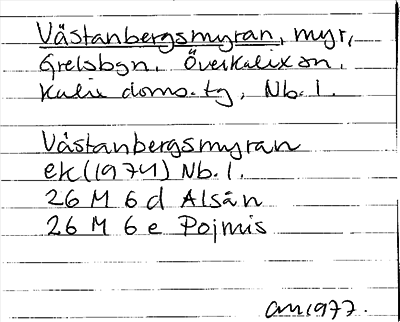 Västanbergsmyran, myr,
Grelsbyn, Överkalix sn,
Kalix doms.tg, Nb. l.
Västanbergsmyran
ek (1974) Nb. l.
26 M 6 d Alsån
26 M 6 e Pojmis
1977.